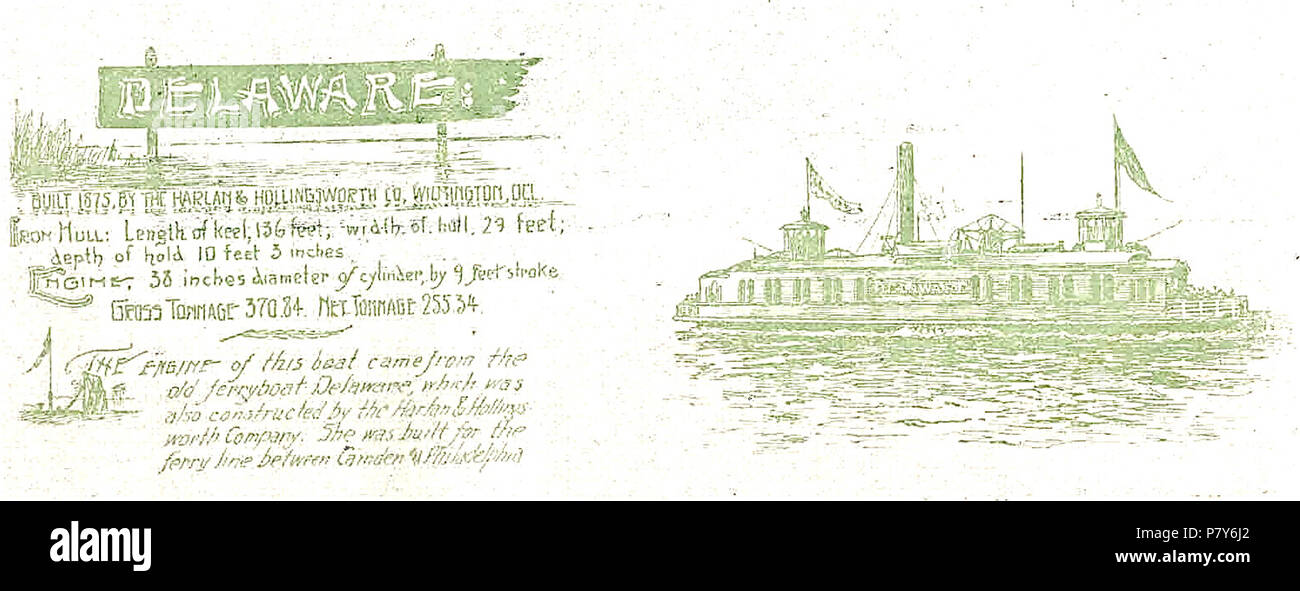 DELAWARE:
BUILT 1875, BY THE HARLAN & HOLLINGSWORTH CO, WILMINGTON, DEL.
IRON HULL: Length of keel, 136 feet; width of hull, 29 feet;
depth of hold 10 feet 3 inches
ENGINE, 38 inches diameter of cylinder, by 9 feet stroke
GROSS TONNAGE 370.84. NET TONNAGE 255.34.
THE ENGINE of this boat came from the
old ferryboat Delaware, which was
also constructed by the Harlan & Hollings-
worth Company. She was built for the
ferry line between Camden & Philadelphia
DELAWARE
alamy
alamy
Image ID: P7Y6J2
www.alamy.com